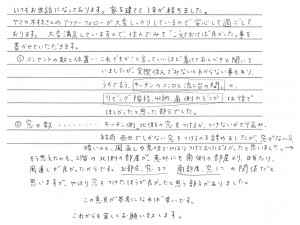 いつもお世話になっております。家を建てて1年が経ちました。
ヤマサ木村さんのアフターフォローが大変しっかりしているので安心して過ごして
おります。大変満足していますので、住んでみて"こうしておけば良かった"事を
書かせていただきます。
① コンセントの数と位置…これでもか!と言っていいほど建てておくべきと聞いて
いましたが、実際住んでみないとわからない事もあり、
もう1ヶ所、キッチンのコンロと流し台の間と、
リビング、階段、収納、廊下のどこかは後で
ほしかったと思った部分でした。
② 窓の数…キッチン側、北側の窓をつけるか、つけないかで悩み、
結局 西日でしかない窓をつけるのを諦めましたが、窓がないと
暗いのと、風通しの気持はやはりつけておけばよかったと思いました。
もう考えたのも、2階の北側の部屋が意外にも南側の部屋より、日当たり、
風通しが良かったからです。北部屋、窓2つ 南部屋、窓1つ の関係だと
思いますが、やはり窓をつけたほうが良かったと思う部分がありました。
この意見が参考になれば幸いです。
これからも宜しくお願い致します。